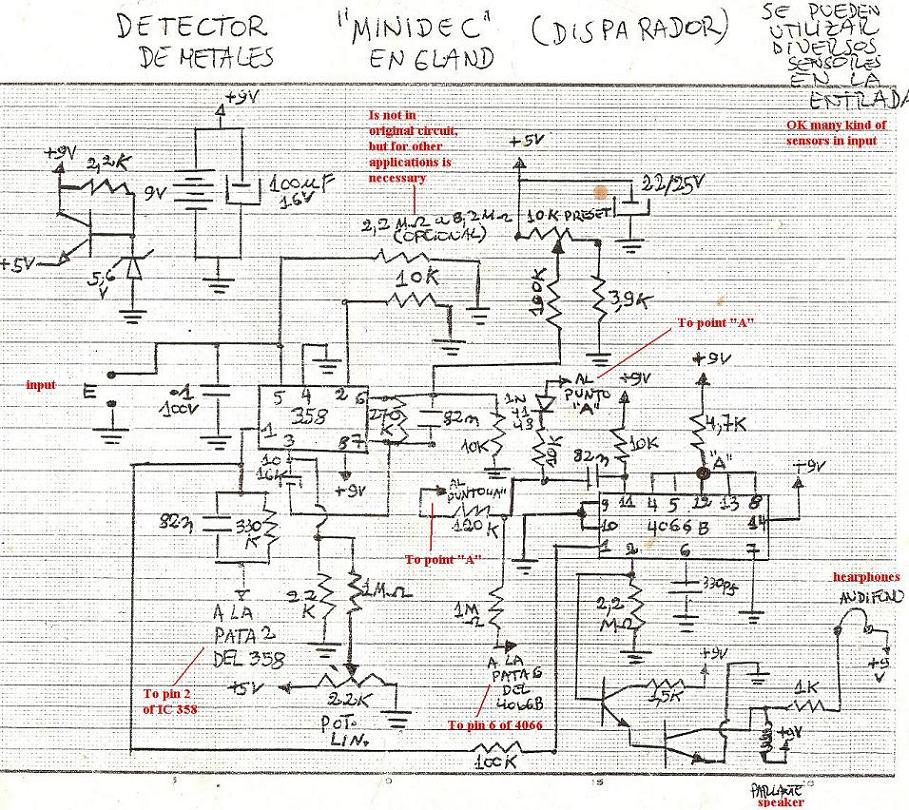 DETECTOR "MINIDEC" (DISPARADOR)
DE METALES ENGLAND
SE PUEDEN
UTILIZAR
DIVERSOS
SENSORES
EN LA
ENTRADA
OK many kind of
sensors in input
Is not in
original circuit,
but for other
applications is
necessary
+9V
+9V
2,2K
9V
100µF
16V
+5V
5,6
V
+5V
22/25V
10K PRESET
2,2 MΩ a 8,2MΩ
(OPCIONAL)
10K
100K
3,9K
To point "A"
input
E
.1
100V
5 4 2 6
358
1 3 8 7
270
K
82n
10K
1N
41
48
AL
PUNTO
"A"
+9V
10K
+9V
4,7K
"A"
+9V
10
16V
+9V
AL
PUNTO "A"
120
K
To point "A"
82n
9 11 4 5 12 13 8
10 4066B 14
1 2 6 7
82n
330
K
A LA
PATA 2
DEL 358
To pin 2
of IC 358
22
K
1MΩ
+5V
2.2K
POT.
LIN.
1M
Ω
A LA
PATA 6
DEL
4066B
To pin 6 of 4066
2,2
MΩ
330pf
hearphones
AUDIFONO
+9
V
+9V
1,5K
1K
+9V
100K
PARLANTE
speaker